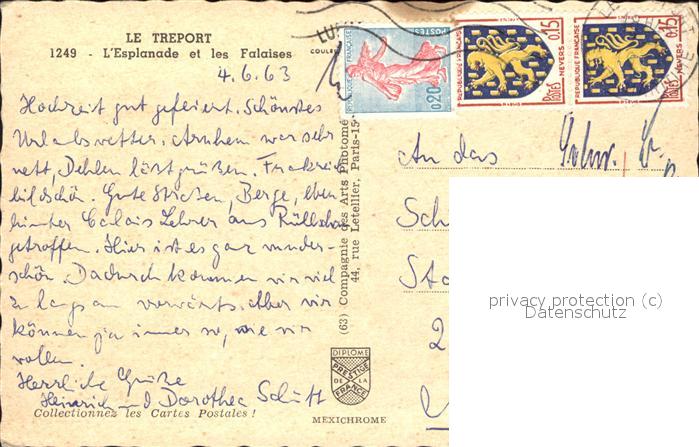 LE TREPORT
1249 - L'Esplanade et les Falaises
4.6.63
Hochzeit gut gefeiert. Schönstes
Urlaubswetter. Arnhem war sehr
nett, Dehlen läst grüßen. Frankreich
bildschön. Gute Straßen, Berge, eben
hinter Calais Lehrer aus
getroffen. Hier ist es ganz wunder-
schön. Dadurch kommen wir viel
zu langsam vorwärts. Aber wir
können ja immer so, wie wir
wollen.
Herrliche Grüße
Heinrich und Dorothea Schütt
Collectionnez les Cartes Postales !
COULEU
(63) Compagnie des Arts Photomé
44, rue Letellier, Paris-15
DIPLOME
PRESTIGE
DE LA
FRANCE
MEXICHROME
REPUBLIQUE FRANÇAISE
POSTES
0,20
REPUBLIQUE FRANÇAISE
NEVERS
POSTES
0,15
REPUBLIQUE FRANÇAISE
NEVERS
POSTES
0,15
An das
Sch
Sta
2
privacy protection (c)
Datenschutz